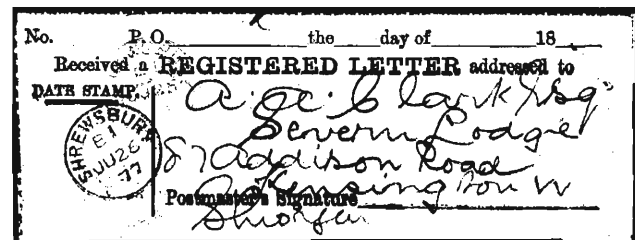 No. P. O. the day of 18
Received a REGISTERED LETTER addressed to
DATE STAMP. A. Clark Esq
SHREWSBURY E1 JU 26 77 Severn Lodge
87 Addison Road
Kensington W
Postmaster's Signature